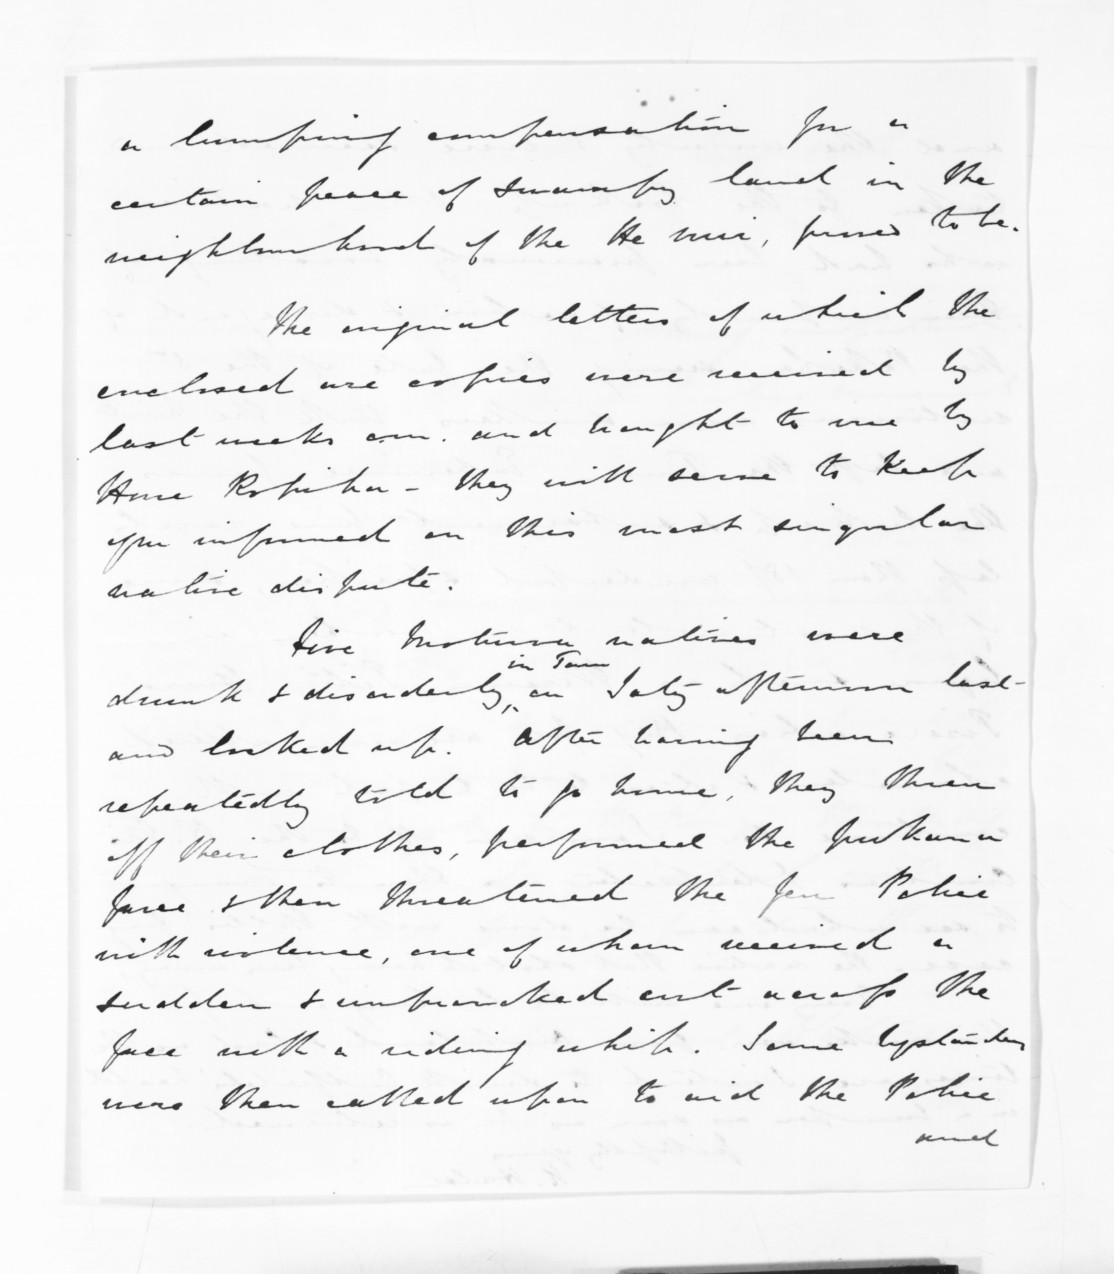 a lumping compensation for a
certain peace of swampy land in the
neighbourhood of the , proved to be.
The original letters of which the
enclosed are copies were received by
last weeks om. and brought to me by
Hone Ropiha - they will serve to keep
you informed on this most singular
native dispute.
Five Moturoa natives were
drunk & disorderly, in Town on Saty afternoon last
and locked up. After having been
repeatedly told to go home, they threw
off their clothes, performed the pukana
farce & then threatened the few Police
with violence, one of whom received a
sudden & unprovoked cut across the
face with a riding whip. Some bystanders
were then called upon to aid the Police
and